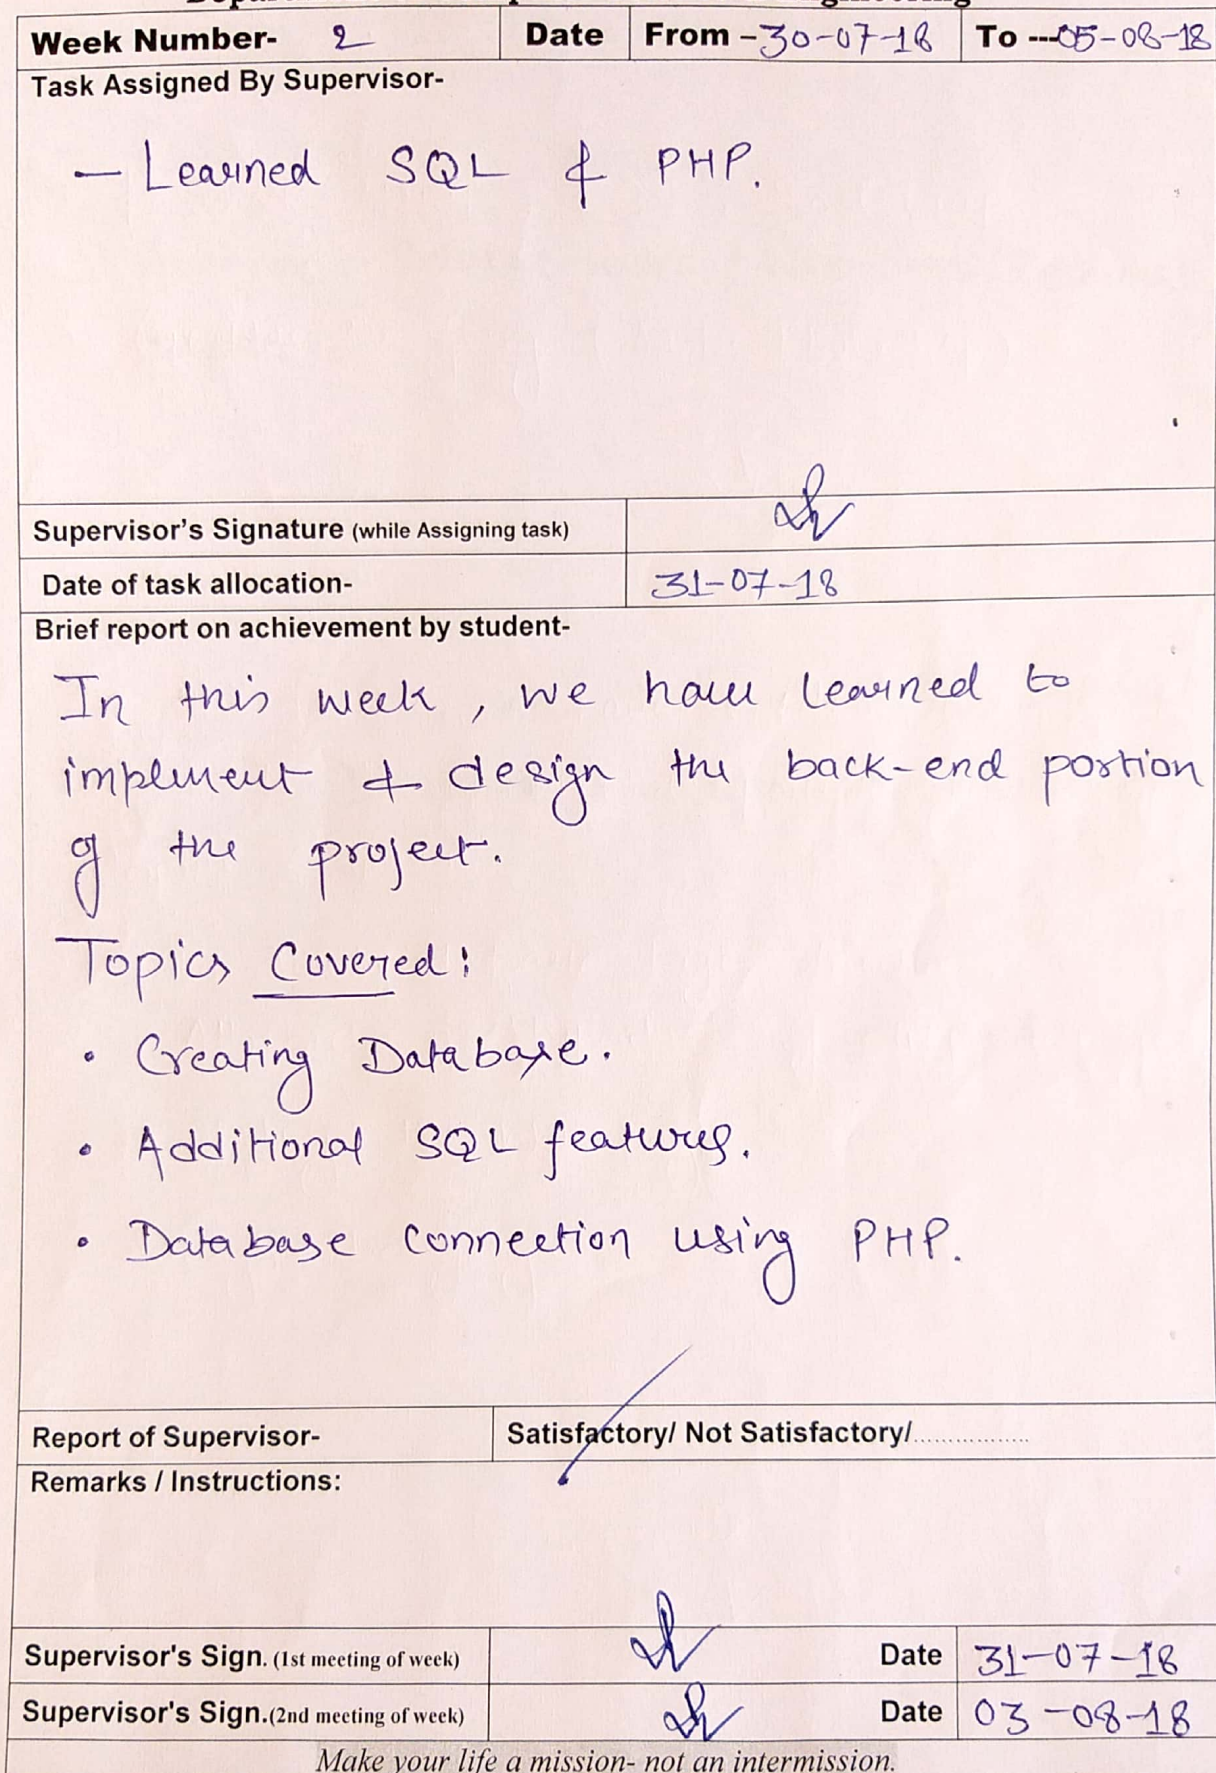 Week Number- 2 Date From -30-07-18 To ---05-08-18
Task Assigned By Supervisor-
- Learned SQL & PHP.
Supervisor's Signature (while Assigning task)
Date of task allocation- 31-07-18
Brief report on achievement by student-
In this week, we have learned to
implement & design the back-end portion
of the project.
Topics Covered:
• Creating Database.
• Additional SQL features.
• Database connection using PHP.
Report of Supervisor- Satisfactory/ Not Satisfactory/.................
Remarks / Instructions:
Supervisor's Sign. (1st meeting of week) Date 31-07-18
Supervisor's Sign.(2nd meeting of week) Date 03-08-18
Make your life a mission- not an intermission.